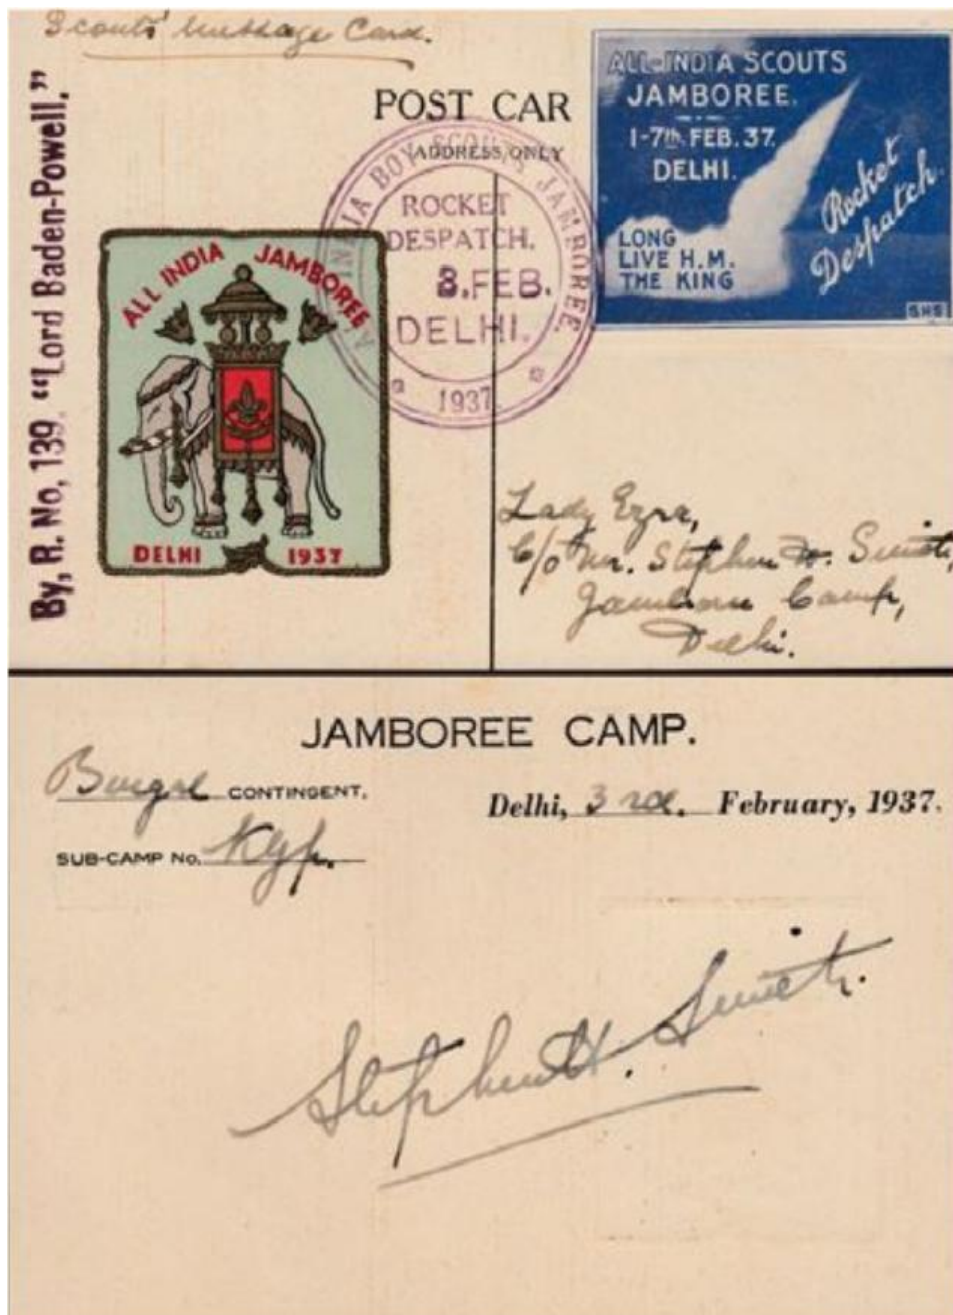 Scouts' Message Card.
By, R. No, 139. "Lord Baden-Powell."
POST CAR
ADDRESS ONLY
ALL-INDIA SCOUTS
JAMBOREE.
1-7th. FEB. 37.
DELHI.
Rocket
Despatch.
LONG
LIVE H.M.
THE KING
SHS
INDIA BOY SCOUTS JAMBOREE.
ROCKET
DESPATCH.
3.FEB.
DELHI.
1937
ALL INDIA JAMBOREE
DELHI 1937
Lady Ezra,
C/o Mr. Stephen H. Smith,
Jamboree Camp,
Delhi.
JAMBOREE CAMP.
Bengal CONTINGENT.
Delhi, 3rd. February, 1937.
SUB-CAMP No. Kgp.
Stephen H. Smith.